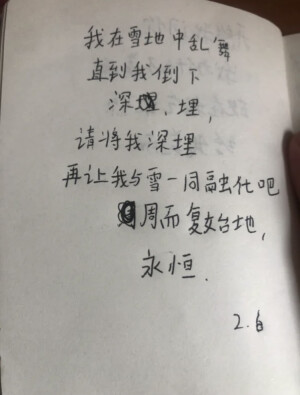 我在雪地中乱舞
直到我倒下
深埋,
请将我深埋
再让我与雪一同融化吧
周而复始地,
永恒.
2.6